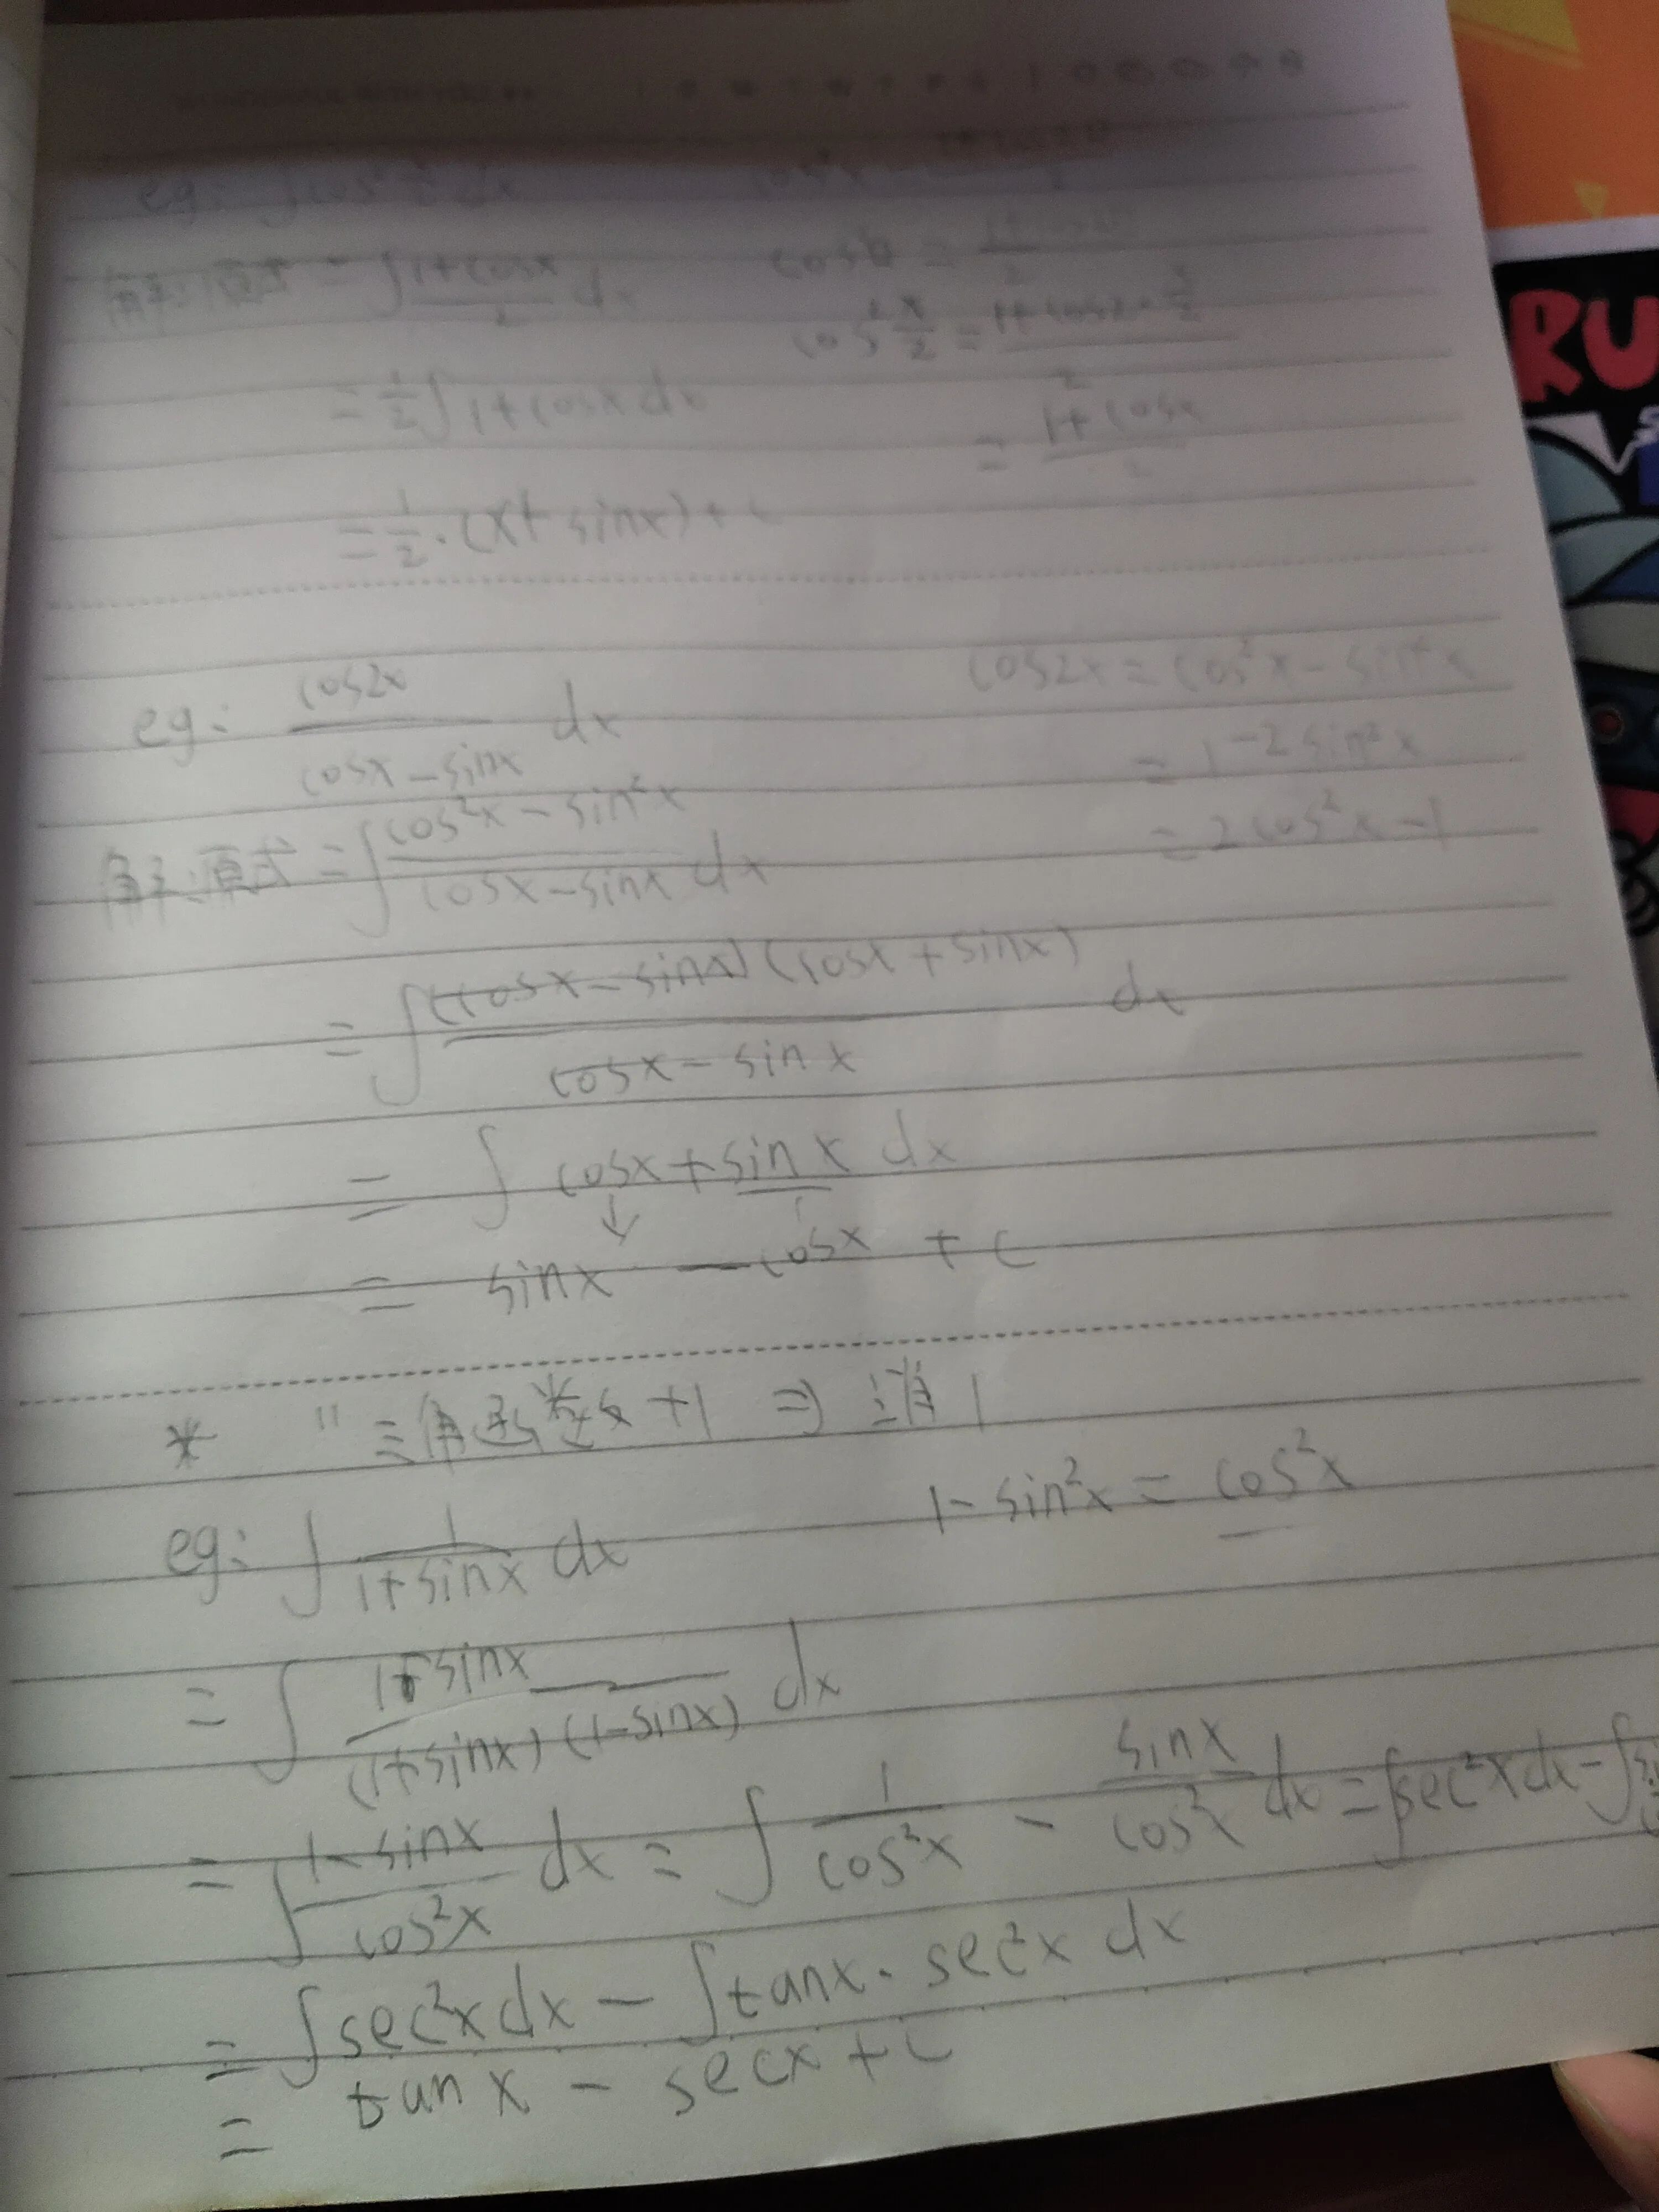 eg: ∫cos²x/2 dx
解:原式 = ∫(1+cosx)/2 dx
cos²x/2 = (1+cos2·x/2)/2
= 1/2∫1+cosx dx
= (1+cosx)/2
= 1/2·(x+sinx)+c
eg: cos2x/(cosx-sinx) dx
cos2x = cos²x - sin²x
= 1-2sin²x
= 2cos²x-1
解:原式 = ∫(cos²x - sin²x)/(cosx-sinx) dx
= ∫(cosx-sinx)(cosx+sinx)/(cosx-sinx) dx
= ∫ cosx+sinx dx
↓
= sinx - cosx + c
* " 三角函数+1 ⇒ 消1
1-sin²x = cos²x
eg: ∫ 1/(1+sinx) dx
= ∫ (1-sinx)/((1+sinx)(1-sinx)) dx
= ∫(1-sinx)/cos²x dx = ∫ 1/cos²x - sinx/cos²x dx = ∫sec²xdx - ∫
= ∫sec²xdx - ∫tanx·sec²x dx
= tanx - secx + c
RU